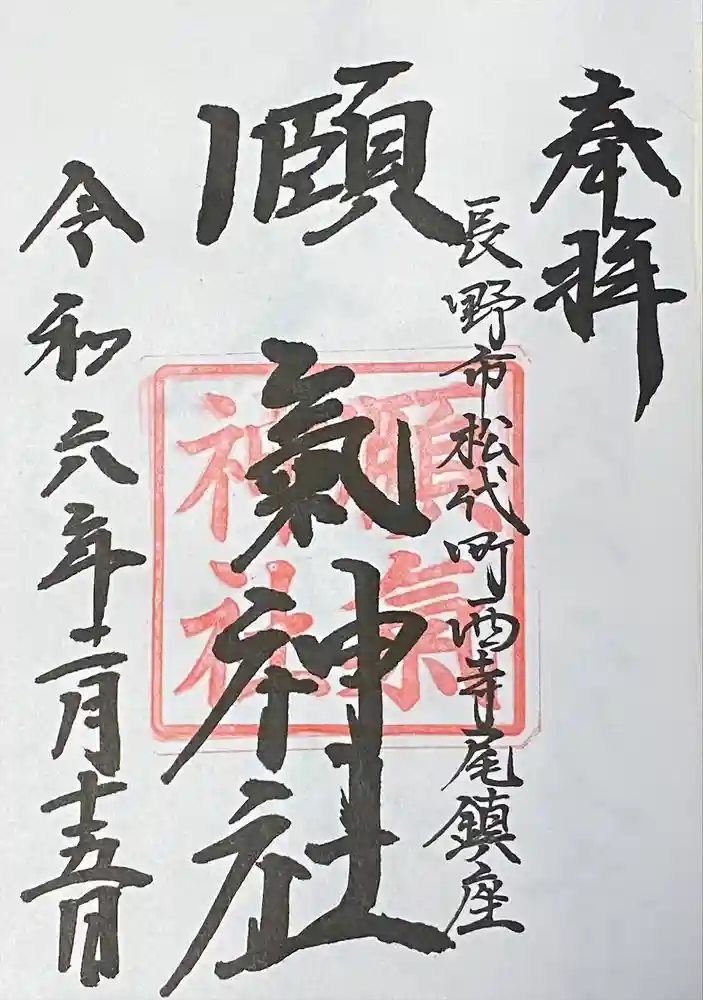 奉拝
長野市松代町西寺尾鎮座
頤氣神社
令和六年十二月十五日
神社